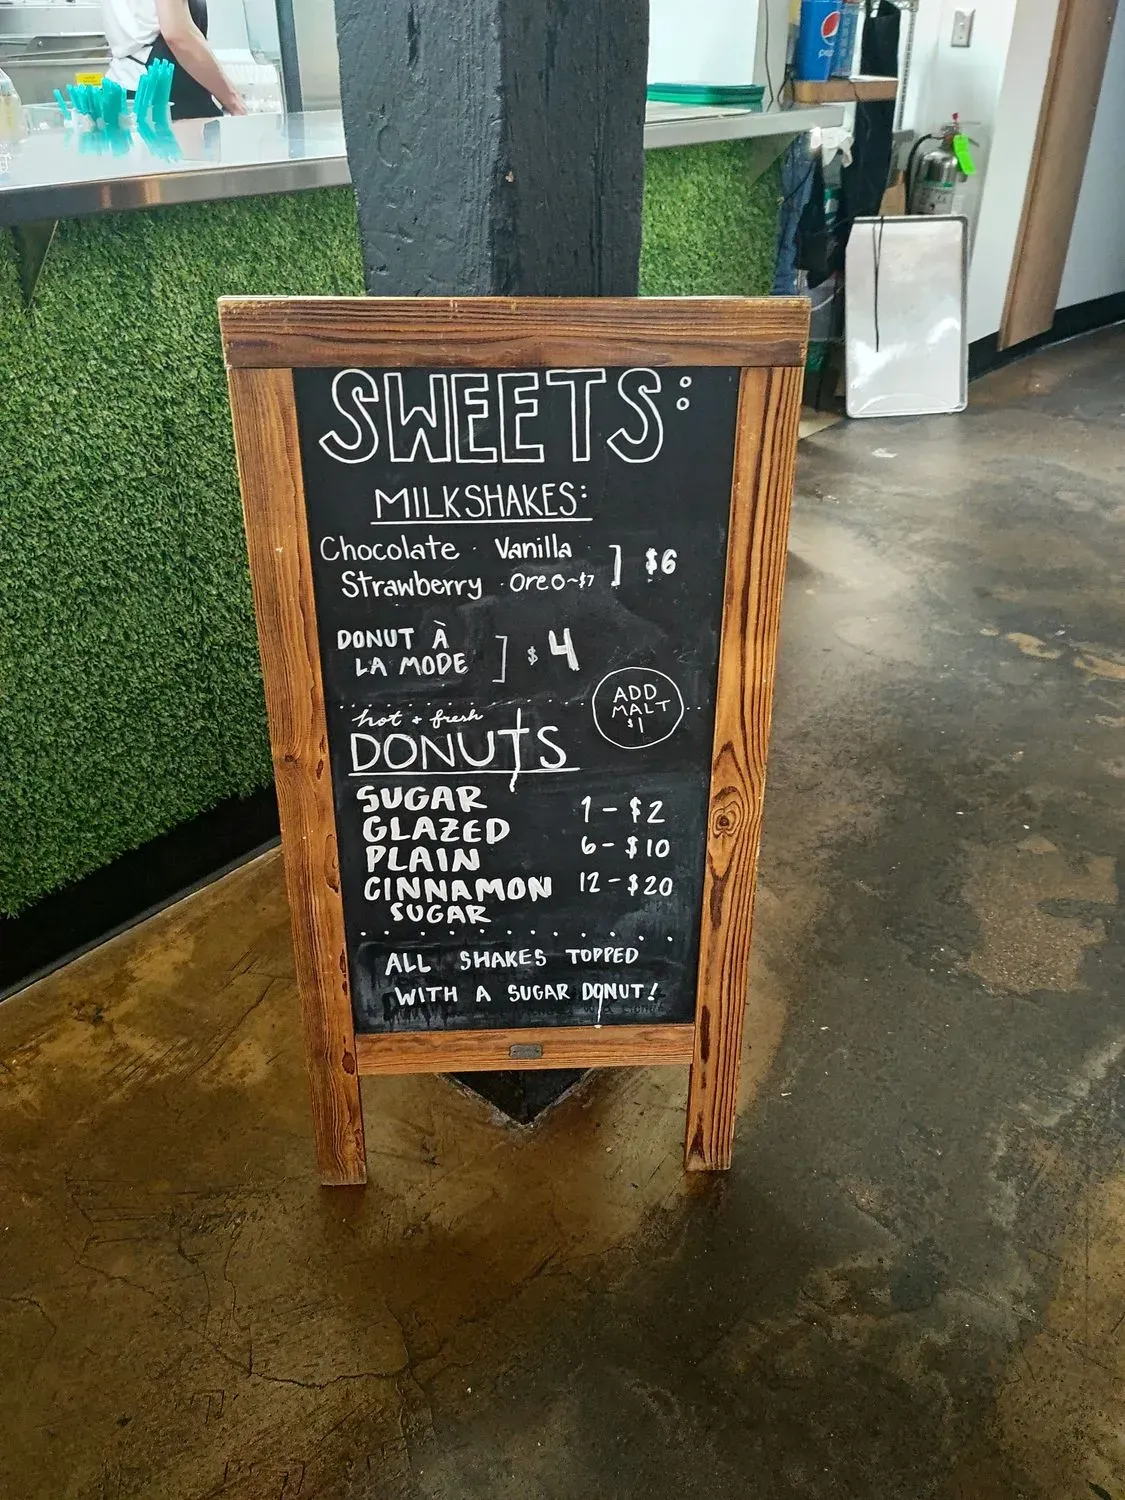 SWEETS:
MILKSHAKES:
Chocolate · Vanilla ] $6
Strawberry · Oreo~$7
DONUT À
LA MODE ] $4
ADD
MALT
$1
hot + fresh
DONUTS
SUGAR 1 - $2
GLAZED
PLAIN 6 - $10
CINNAMON 12 - $20
SUGAR
ALL SHAKES TOPPED
WITH A SUGAR DONUT!
pepsi